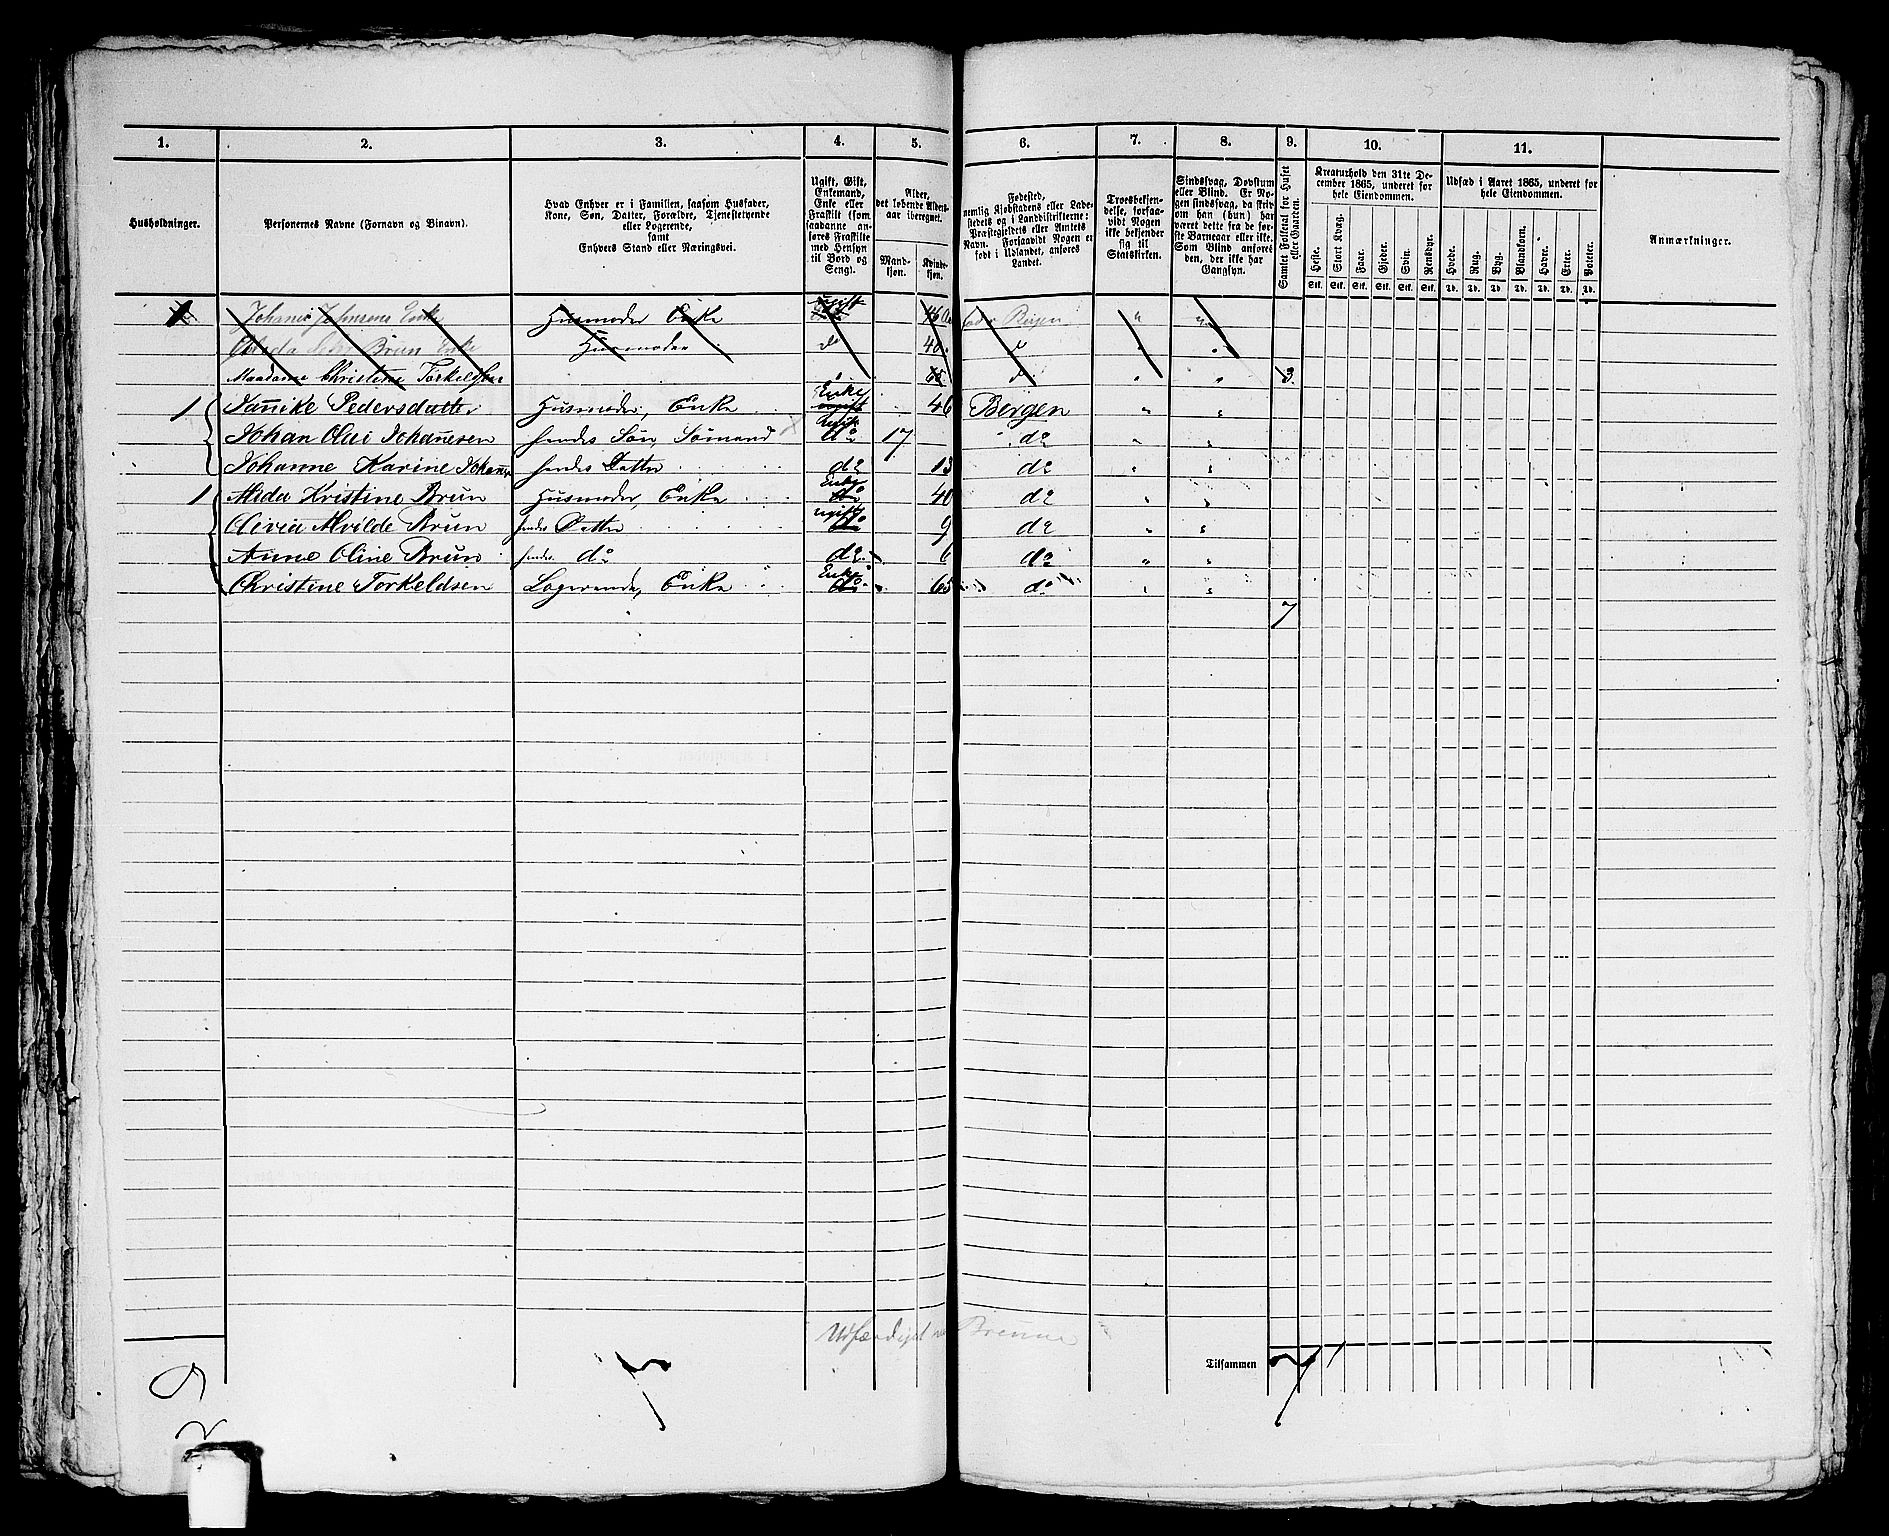 1. 2. 3. 4. 5. 6. 7. 8. 9. 10. 11.
Husholdninger.
Personernes Navne (Fornavn og Binavn).
Hvad Enhver er i Familien, saasom Husfader,
Kone, Søn, Datter, Forældre, Tjenestetyende
eller Logerende,
samt
Enhvers Stand eller Næringsvei.
Ugift, Gift,
Enkemand,
Enke eller
Fraskilt (som
saadanne an-
føres Fraskilte
med Hensyn
til Bord og
Seng).
Alder,
det løbende Alders-
aar iberegnet.
Mand-
kjøn.
Kvinde-
kjøn.
Fødested,
nemlig Kjøbstadens eller Lade-
stedets og i Landdistrikterne:
Præstegjeldets eller Amtets
Navn. Forsaavidt Nogen er
født i Udlandet, anføres
Landet.
Troesbekjen-
delse, forsaa-
vidt Nogen
ikke bekjender
sig til
Statskirken.
Sindssvag, Døvstum
eller Blind. Er No-
gen sindssvag, da skriv
om han (hun) har
været dette fra de før-
ste Barneaar eller ikke.
Som Blind anføres
den, der ikke har
Gangsyn.
Samlet Folketal for Huset
eller Gaarden.
Kreaturhold den 31te De-
cember 1865, underet for
hele Eiendommen.
Heste. Stort Kvæg. Faar. Gjeder. Svin. Rensdyr.
Stk. Stk. Stk. Stk. Stk. Stk.
Udsæd i Aaret 1865, underet for
hele Eiendommen.
Hvede. Rug. Byg. Blandkorn. Havre. Erter. Poteter.
Td. Td. Td. Td. Td. Td. Td.
Anmærkninger.
1 Johanes Johnsens Enke Husmoder Enke ugift 46 Bergen " "
Brun Enke Husmoder do 40 d " "
Maadame Christine Torkelsen 65 d " " 3
1 Jannike Pedersdatter Husmoder, Enke Enke 46 Bergen " "
Johan Olai Johanesen hendes Søn Sømand ugift do 17 do " "
Johanne Karine Johans hendes Datter do 13 do " "
1 Alida Kristine Brun Husmoder, Enke Enke do 40 do " "
Olivia Alvilde Brun hendes Datter ugift do 9 do " "
Anne Oline Brun hendes do do 6 do " "
Christine Torkeldsen Logerende, Enke Enke do 65 do " "
7
Udfærdiget Brunn
Tilsammen 7
7